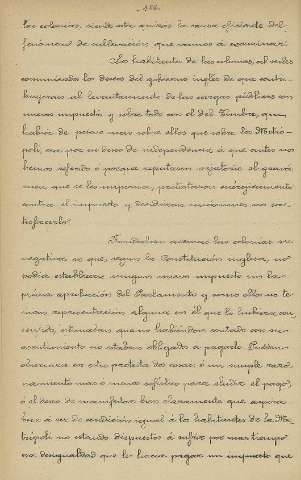 las colonias, siendo esta quizás la causa eficiente del
fenómeno de sublevación que vamos á examinar.
Los habitantes de las colonias, al serles
comunicados los deseos del gobierno inglés de que contri-
buyeran al levantamiento de las cargas públicas con
nuevos impuestos y sobre todo con el del Timbre, que
había de pesar más sobre ellos que sobre la Metró-
poli, sea por su deseo de independencia á que antes nos
hemos referido ó porque reputasen injusto el gravá-
men que se les imponía, protestaron enérgicamente
contra el impuesto y decidieron no
satisfacerlo.
Fundaban además las colonias su
negativa en que, según la Constitución inglesa, no
podía establecerse ningún nuevo impuesto sin la
previa aprobación del Parlamento y como ellas no te-
nían representación alguna en él que lo hubiera con-
sentido, entendían que no habiéndose contado con su
asentimiento no estaban obligadas á pagarlo. Pueden
observarse en esta protesta dos cosas: ó un simple razo-
namiento más ó menos sofístico para eludir el pago,
ó el deseo de manifestar bien claramente que aspira-
ban á ser de condición igual á los habitantes de la Me-
trópoli no estando dispuestos á sufrir por más tiempo
esa desigualdad que les hacía pagar un impuesto que